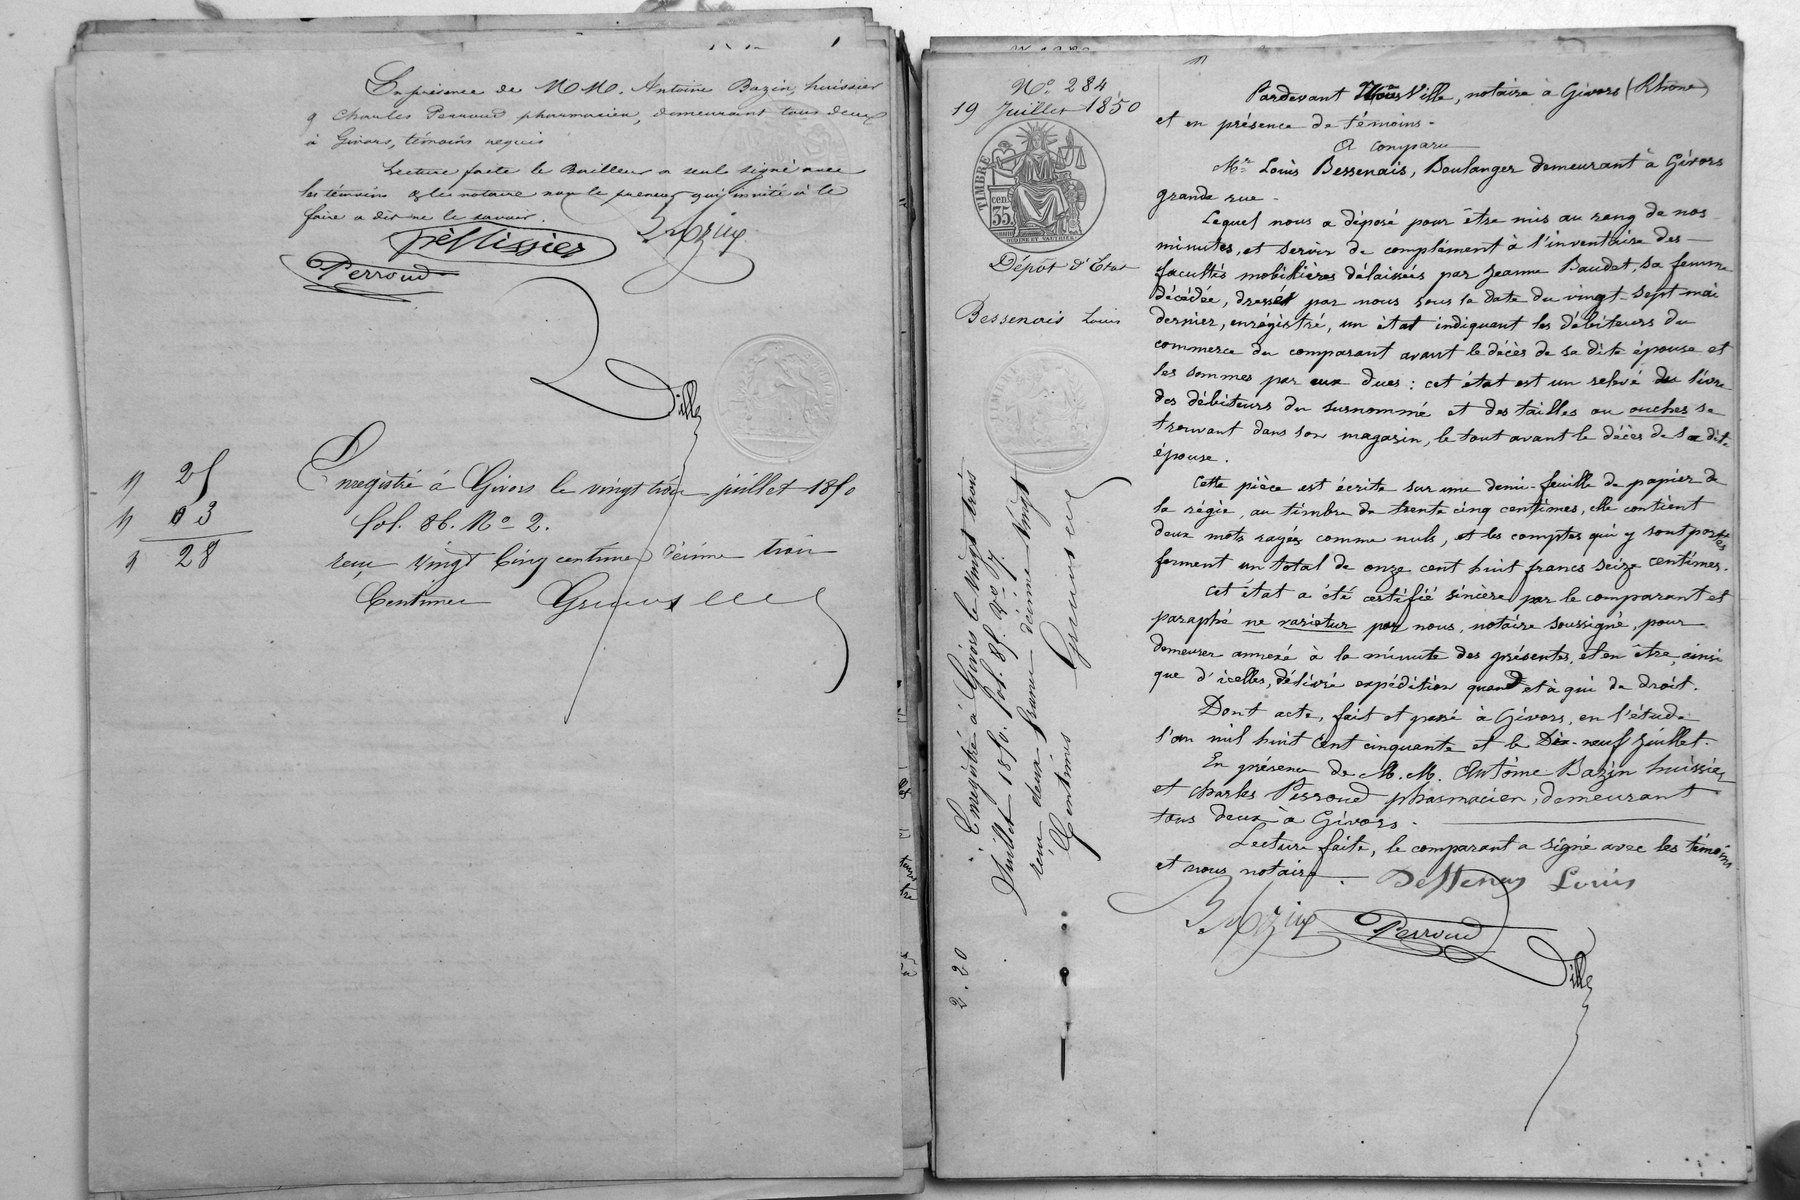 En présence de M M. Antoine Bazin, huissier
& Charles Perroud pharmacien, demeurant tous deux
à Givors, témoins requis
Lecture faite le Bailleur a seul signé avec
les témoins & le notaire non le preneur qui invité à le
faire a dit ne le savoir.
Pèllissier Bazin
Perroud
Ville
25
03
28
Enregistré à Givors le vingt trois juillet 1850
fol. 86. No 2.
reçu vingt cinq centimes décime trois
Centimes
No. 284
19 Juillet 1850
TIMBRE
cen.
35
OUDINE ET VAUTHIER
Dépôt d'Etat
Bessenais Louis
Enregistré à Givors le vingt trois
Juillet 1850. fol. 85. Vo
reçu deux francs décime vingt
Centimes
2.20
Pardevant Me Ville, notaire à Givors (Rhône)
et en présence de témoins.
A Comparu
Mr Louis Bessenais, Boulanger demeurant à Givors
grande rue.
Lequel nous a déposé pour être mis au rang de nos
minutes, et servir de complément à l'inventaire des
facultés mobilières délaissés par Jeanne Baudet, sa femme
décédée, dressé par nous sous la date du vingt-sept mai
dernier, enrégistré, un état indiquant les débiteurs du
commerce du comparant avant le décès de sa dite épouse et
les sommes par eux dues: cet état est un relevé du livre
des débiteurs du susnommé et des tailles ou ouches se
trouvant dans son magasin, le tout avant le décès de sa dite
épouse.
Cette pièce est écrite sur une demi-feuille de papier de
la régie, au timbre de trente cinq centimes, elle contient
deux mots rayés comme nuls, et les comptes qui y sont portés
forment un total de onze cent huit francs seize centimes.
Cet état a été certifié sincère par le comparant et
paraphé ne varietur par nous, notaire soussigné, pour
demeurer annexé à la minute des présentes, et en être, ainsi
que d'icelles, délivré expédition quand et à qui de droit.
Dont acte, fait et passé à Givors, en l'étude
l'an mil huit cent cinquante et le Dix-neuf Juillet.
En présence de M.M. Antoine Bazin huissier
et Charles Perroud pharmacien, demeurant
tous deux à Givors.
Lecture faite, le comparant a signé avec les témoins
et nous notaire. Bessenay Louis
Bazin Perroud
Ville